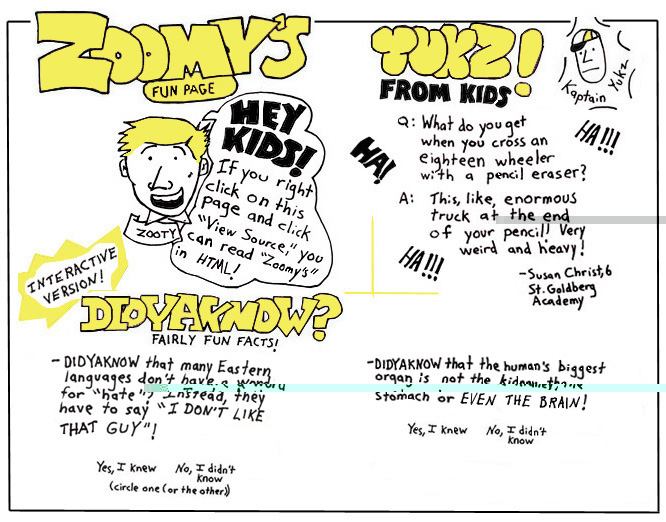 ZOOMY'S
FUN PAGE
HEY
KIDS!
If you right
click on this
page and click
"View Source," you
can read "Zoomy's"
in HTML!
ZOOTY
INTERACTIVE
VERSION!
YUKZ!
FROM KIDS
Kaptain Yukz
HA!
HA!!!
HA!!!
Q: What do you get
when you cross an
eighteen wheeler
with a pencil eraser?
A: This, like, enormous
truck at the end
of your pencil! Very
weird and heavy!
-Susan Christ, 6
St. Goldberg
Academy
DIDYAKNOW?
FAIRLY FUN FACTS!
-DIDYAKNOW that many Eastern
languages don't have a
for "hate"? Instead, they
have to say "I DON'T LIKE
THAT GUY"!
Yes, I knew No, I didn't
know
(circle one (or the other))
-DIDYAKNOW that the human's biggest
organ is not the
stomach or EVEN THE BRAIN!
Yes, I knew No, I didn't
know